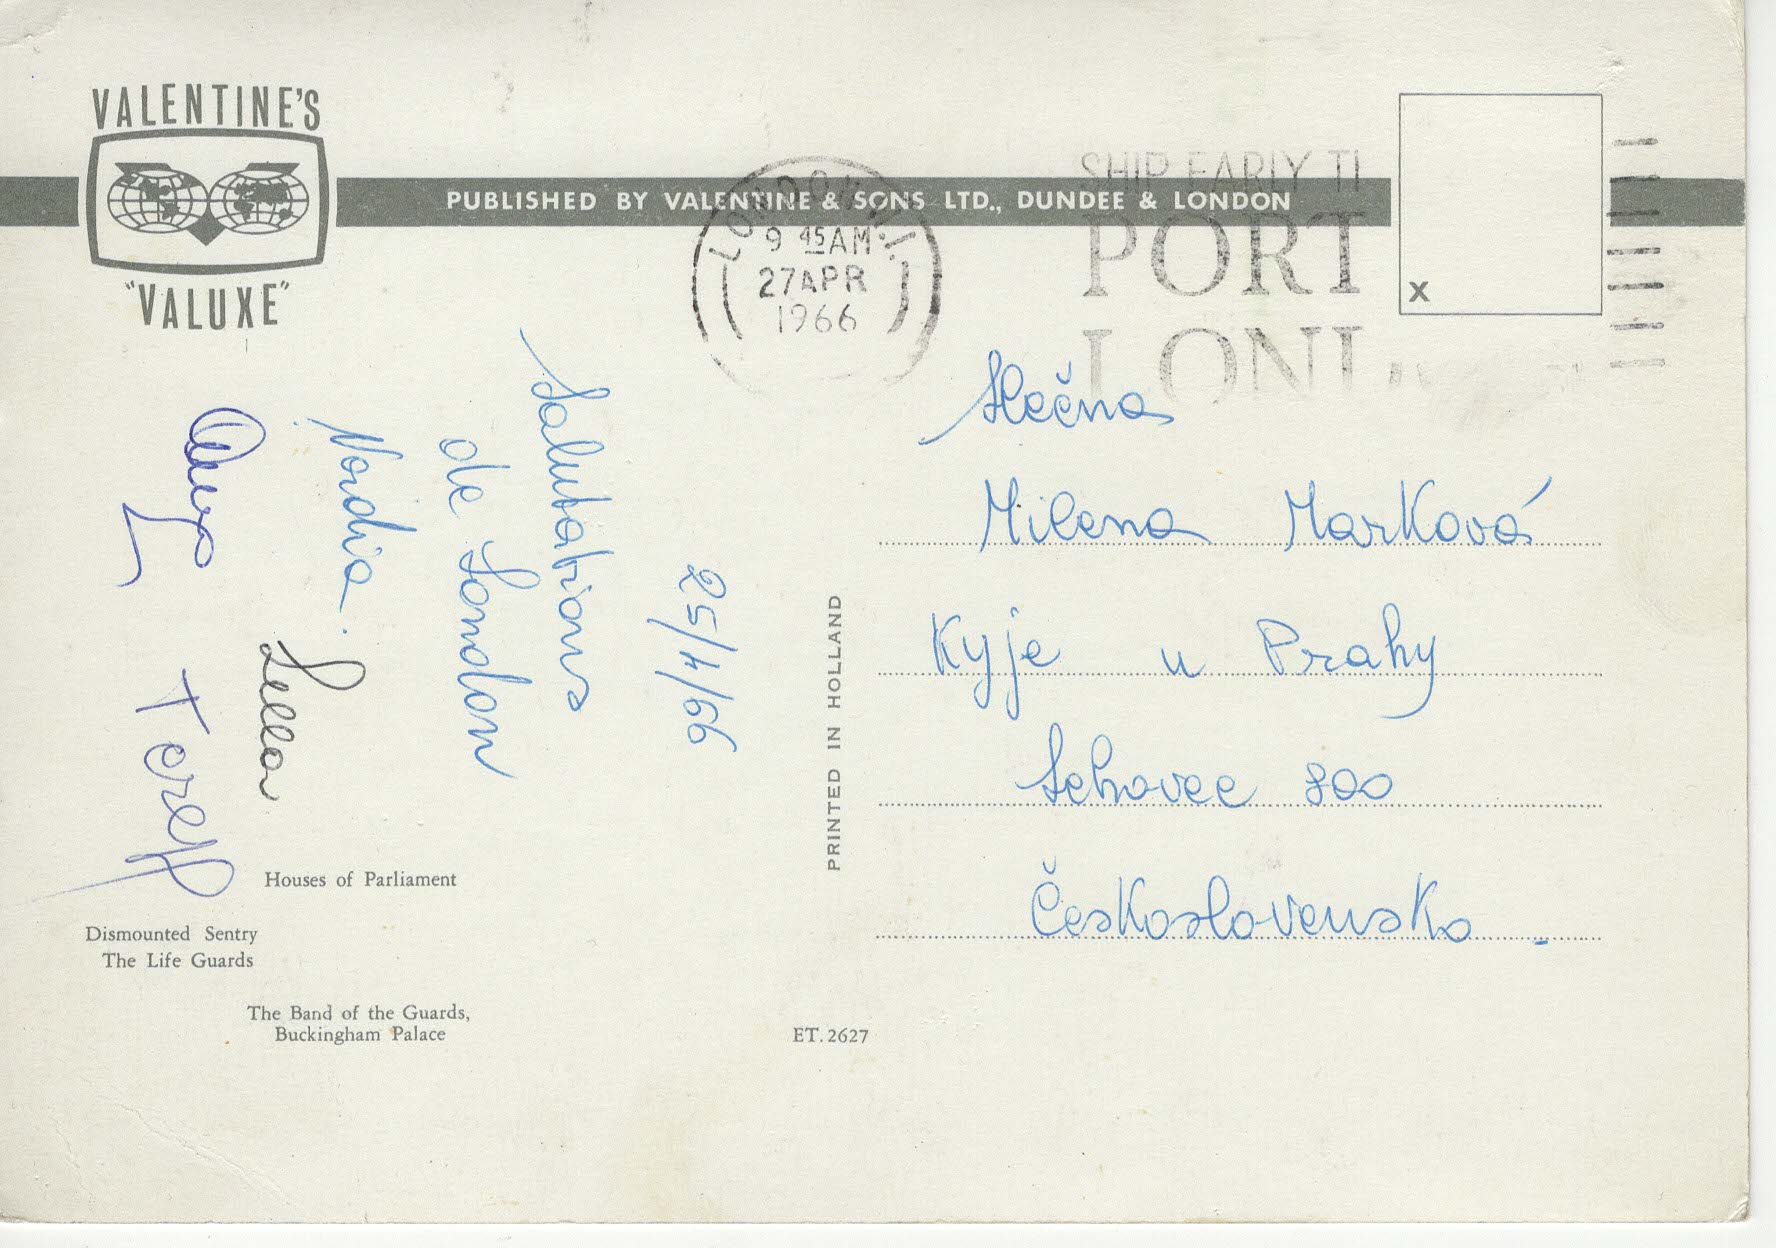 VALENTINE'S
"VALUXE"
PUBLISHED BY VALENTINE & SONS LTD., DUNDEE & LONDON
LONDON W.1.
9 45AM
27 APR
1966
SHIP EARLY
PORT
LON
X
25/4/66
Salutations
de London
Nadia.
Lella
Slečna
Milena Marková
Kyje u Prahy
Lehovec 800
Československo.
PRINTED IN HOLLAND
Houses of Parliament
Dismounted Sentry
The Life Guards
The Band of the Guards,
Buckingham Palace
ET. 2627